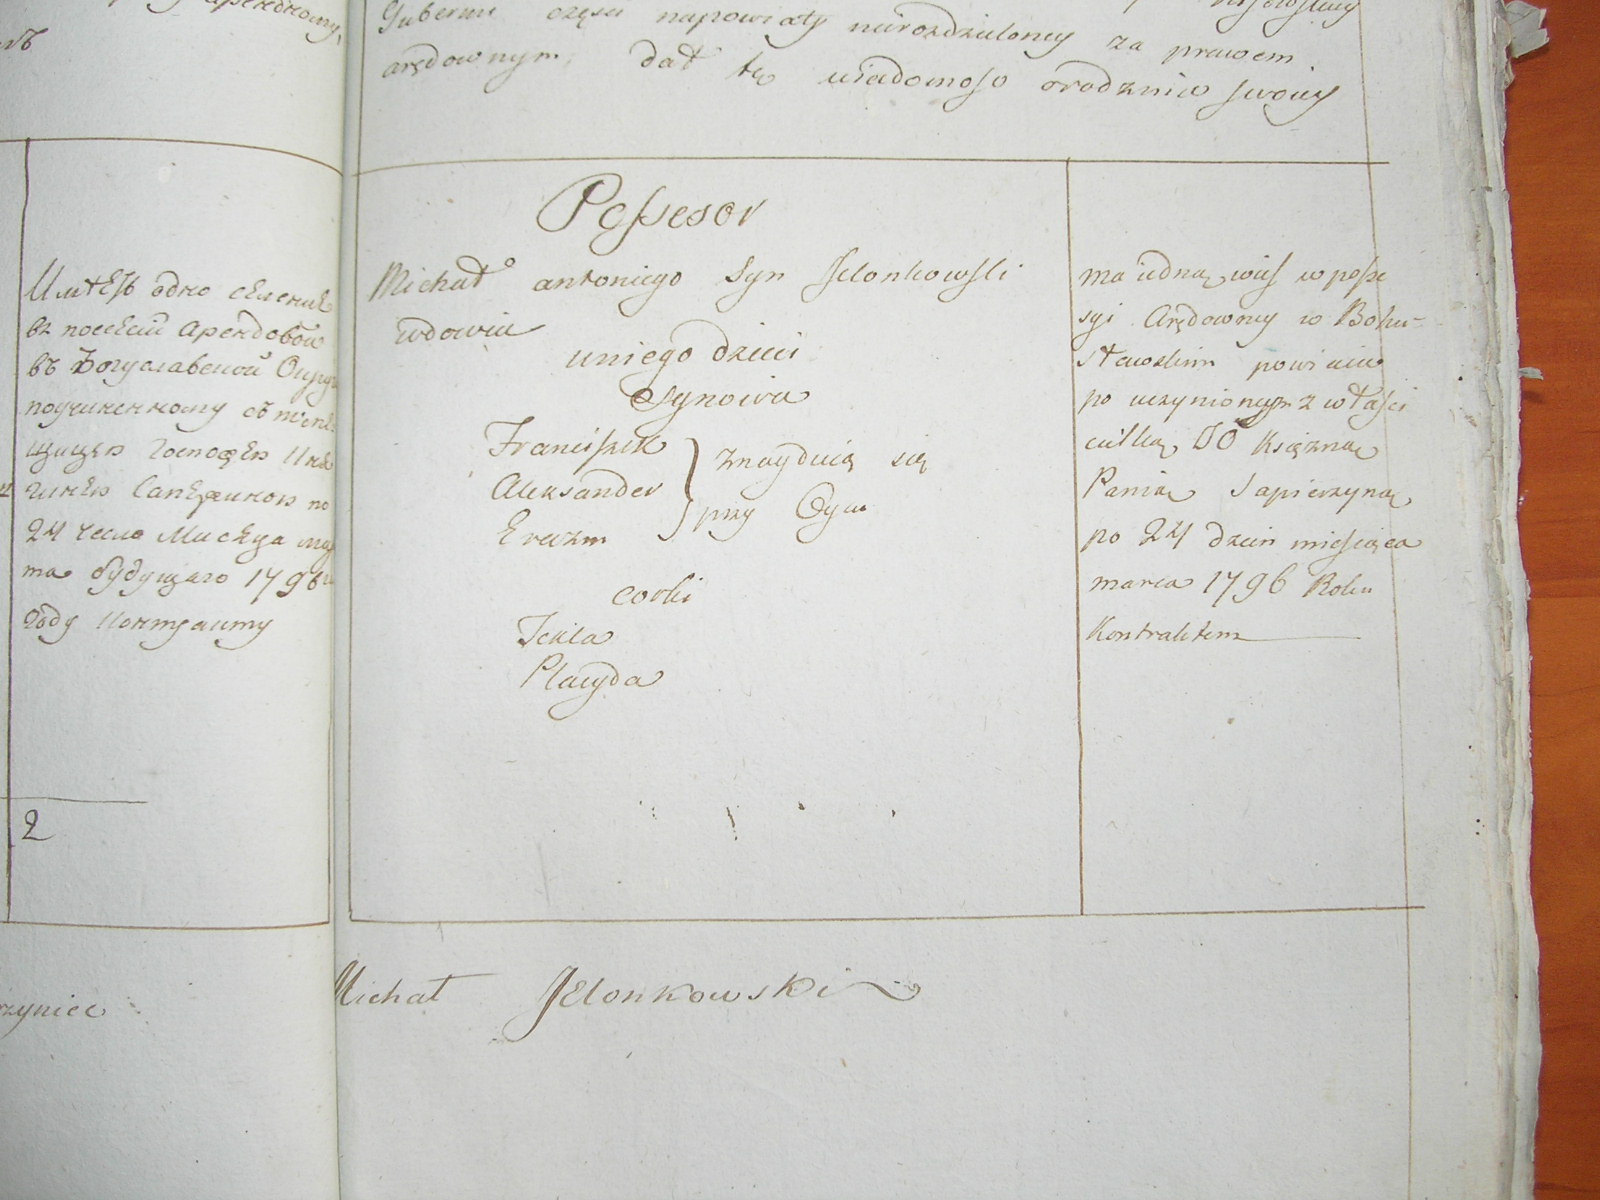 арендному,
Guberni części napowiaty nierozdzieloney za prawem
arędownym, dał tę wiadomość orodznie swoiey
Имѣетъ одно селение
въ посесии арендовой
въ Богуславской Округе
по учиненному съ
госпожею
Сапежиною по
24 число Месяца мар
та будущаго 1796
году контракту
2
Possesor
Michał antoniego Syn Jelonkowski
wdowiec
uniego dzieci
Synowie
Franciszek
Aleksander
Erazm
znayduią się
przy Oycu
corki
Tekla
Placyda
ma iedną wieś w posse
syi Arędowney w Bohu-
sławskim powiecie
po uczynionym z właści
cielką JO Księżną
Panią Sapierzyną
po 24 dzien miesiąca
marca 1796 Roku
Kontraktem
Michał Jelonkowski